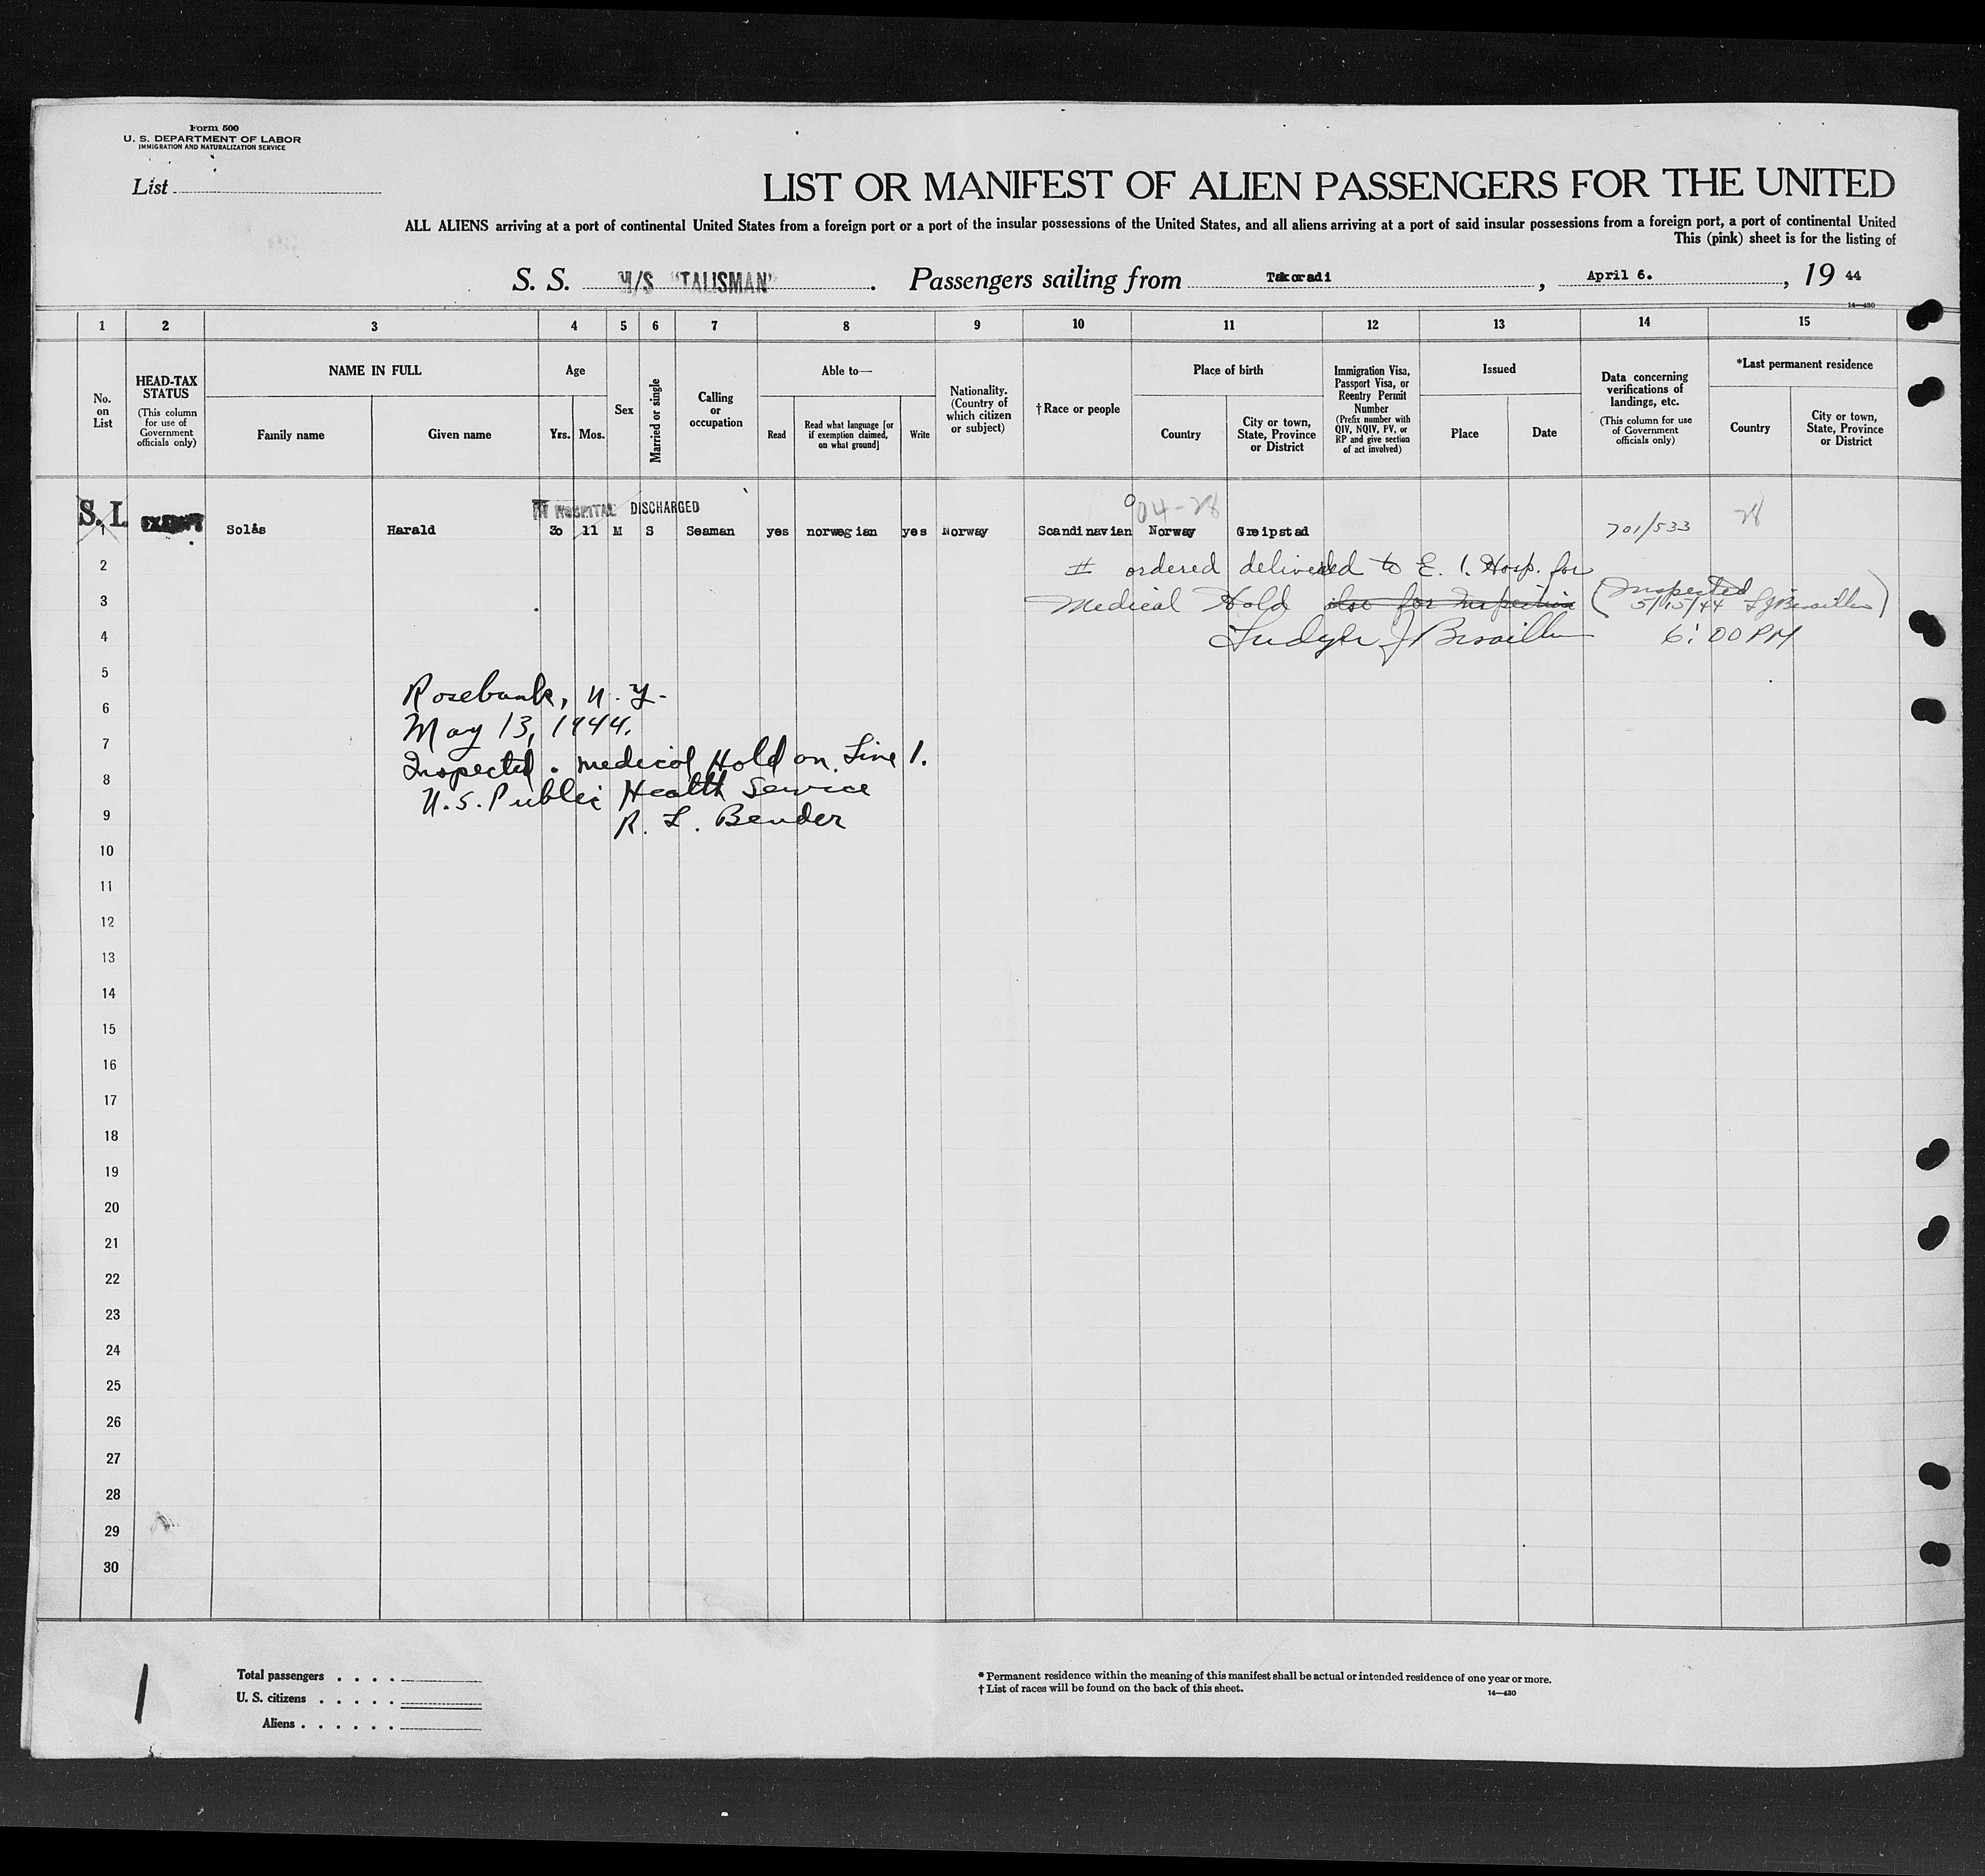 Form 500
U. S. DEPARTMENT OF LABOR
IMMIGRATION AND NATURALIZATION SERVICE
List
LIST OR MANIFEST OF ALIEN PASSENGERS FOR THE UNITED
ALL ALIENS arriving at a port of continental United States from a foreign port or a port of the insular possessions of the United States, and all aliens arriving at a port of said insular possessions from a foreign port, a port of continental United
This (pink) sheet is for the listing of
S. S. M/S "TALISMAN". Passengers sailing from Takoradi, April 6., 19 44
14—430
1 2 3 4 5 6 7 8 9 10 11 12 13 14 15
No. on List
HEAD-TAX STATUS
(This column for use of Government officials only)
NAME IN FULL
Family name
Given name
Age
Yrs.
Mos.
Sex
Married or single
Calling or occupation
Able to—
Read
Read what language [or if exemption claimed, on what ground]
Write
Nationality. (Country of which citizen or subject)
† Race or people
Place of birth
Country
City or town, State, Province or District
Immigration Visa, Passport Visa, or Reentry Permit Number
(Prefix number with QIV, NQIV, PV, or RP and give section of act involved)
Issued
Place
Date
Data concerning verifications of landings, etc.
(This column for use of Government officials only)
*Last permanent residence
Country
City or town, State, Province or District
S. I.
IN HOSPITAL DISCHARGED
04-28
28
1 EXEMPT Solås Harald 30 11 M S Seaman yes norwegian yes Norway Scandinavian Norway Greipstad 701/533
2 # ordered delivered to E. I. Hosp. for
3 Medical Hold also for Inspection (Inspected
5/15/44
4 6:00 PM
5
Rosebank, N.Y.
6
May 13, 1944.
7
Inspected. medical Hold on Line 1.
8
U.S. Public Health Service
9
R. L. Bender
10
11
12
13
14
15
16
17
18
19
20
21
22
23
24
25
26
27
28
29
30
1
Total passengers . . . .
U. S. citizens . . . . .
Aliens . . . . . .
* Permanent residence within the meaning of this manifest shall be actual or intended residence of one year or more.
† List of races will be found on the back of this sheet.
14—430